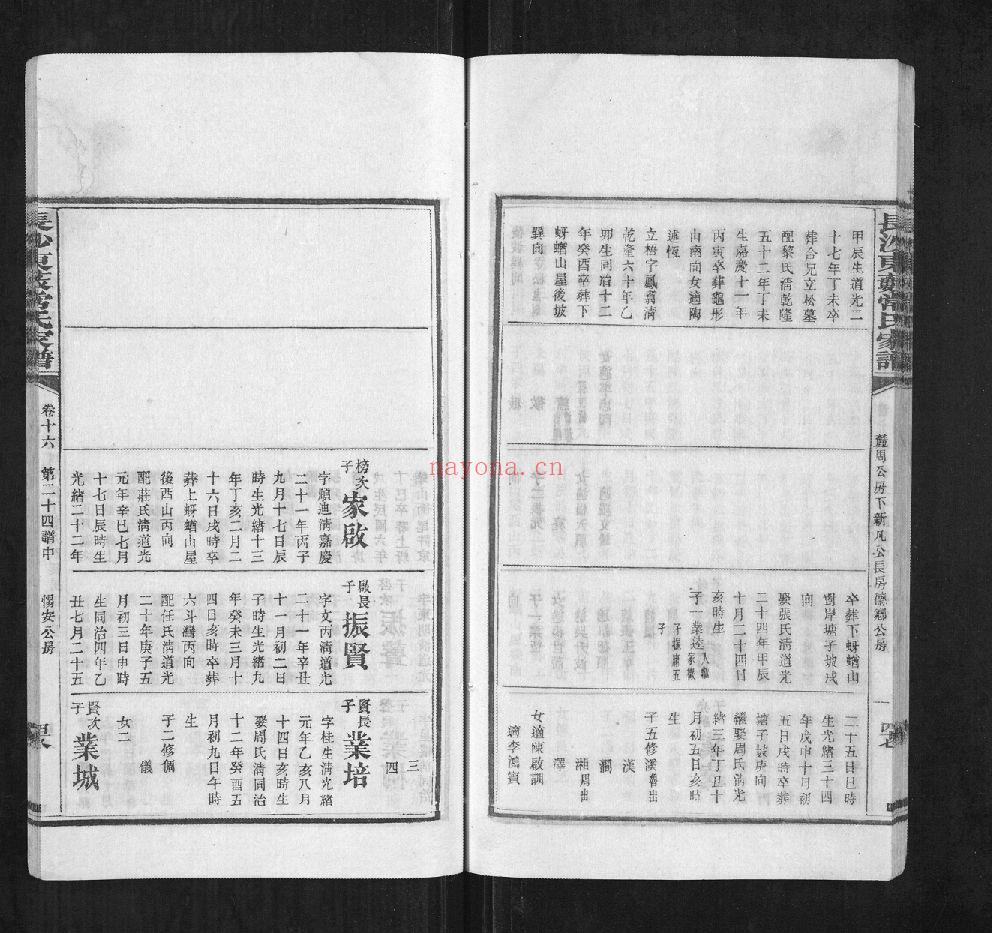 長沙東茭常氏家譜
甲辰生道光二
十七年丁未卒
葬合兄立松墓
配黎氏清乾隆
五十二年丁未
生嘉慶十一年
丙寅卒葬龜形
山南向女適陶
述恆
立梧字鳳賓清
乾隆六十年乙
卯生同治十二
年癸酉卒葬下
蚜蝤山屋後坡
巽向
卒葬下蚜蝤山
對岸塘子坡戌
向
娶張氏清道光
二十四年甲辰
十月二十四日
亥時生
子一業達
二十五日巳時
生光緒三十四
年戊申十月初
五日戌時卒葬
塘子坡戌向
繼娶周氏清光
緒三年丁丑十
月初五日亥時
生
子五修溪
漢
澗
澤
湘周出
女適陳啟訓
適李鴻賓
長沙東茭常氏家譜
卷十六
第二十四譜中
惕安公房
榜次子
家啟
字順迪清嘉慶
二十一年丙子
九月十七日辰
時生光緒十三
年丁亥二月二
十六日戌時卒
葬上蚜蝤山屋
後酉山丙向
配莊氏清道光
元年辛巳七月
十七日辰時生
光緒二十二年
啟長子
振賢
字文丙清道光
二十一年辛丑
十一月初二日
子時生光緒九
年癸未三月十
四日亥時卒葬
六斗灣丙向
配任氏清道光
二十年庚子五
月初三日申時
生同治四年乙
丑七月二十五
三
四
賢長子
業培
字桂生清光緒
元年乙亥八月
十四日亥時生
娶周氏清同治
十二年癸酉五
月初九日午時
生
子二修倆
儀
女二
賢次子
業城
nayona.cn